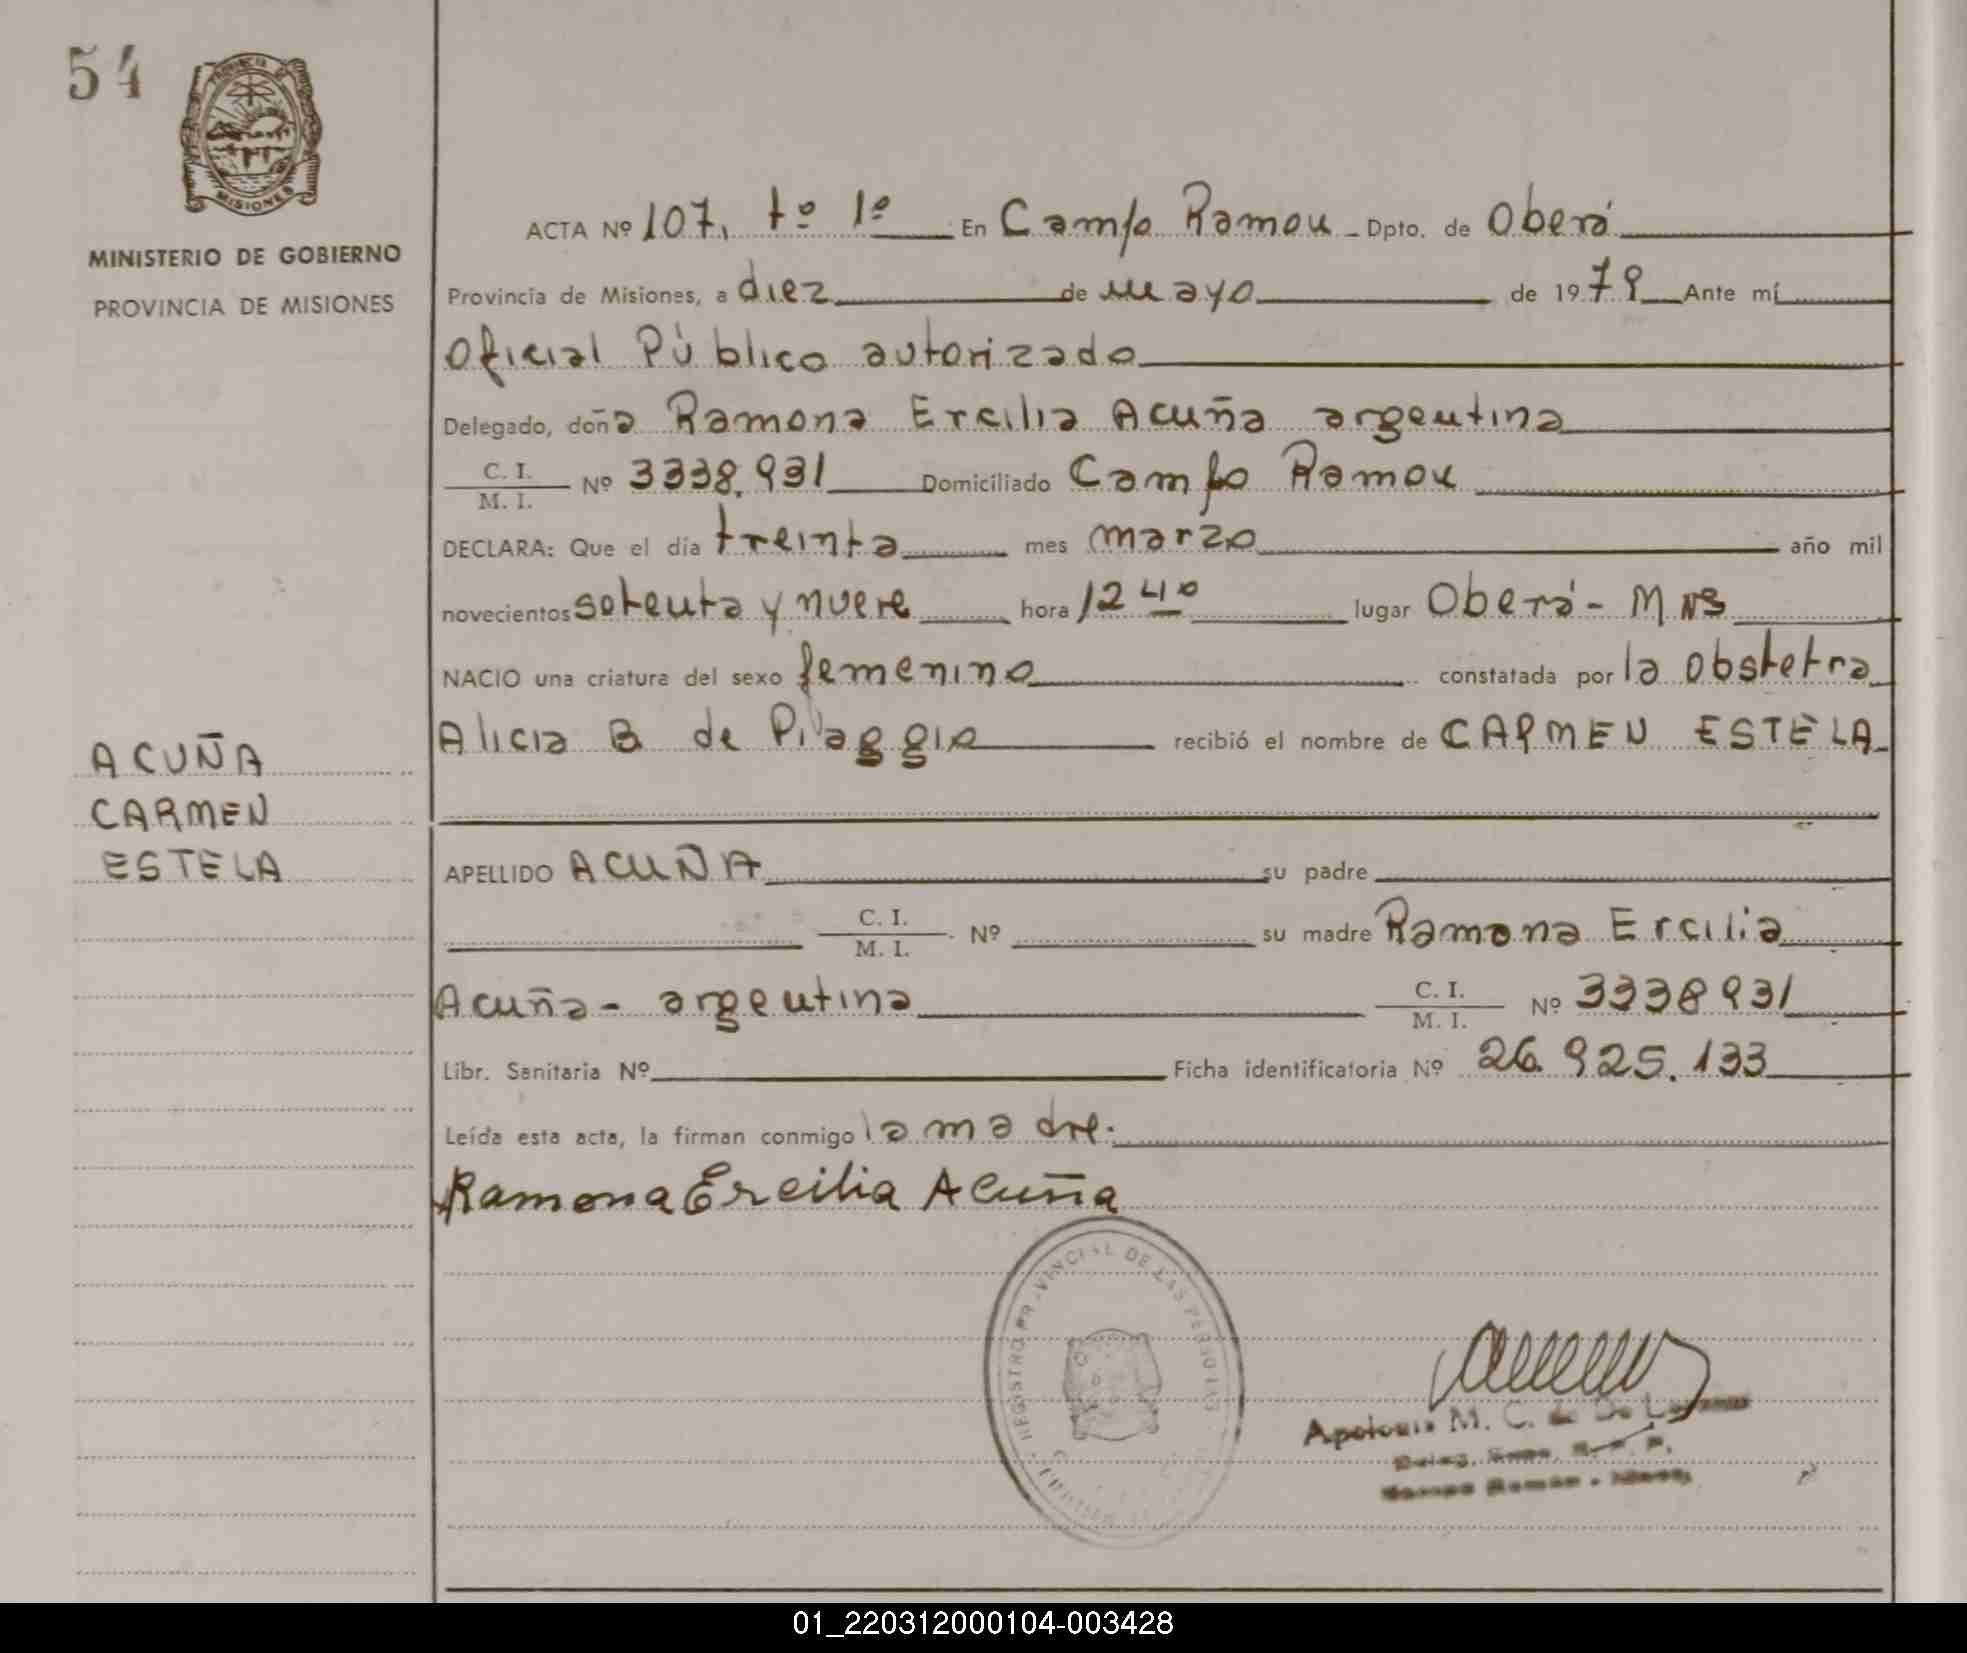 54
PROVINCIA DE
MISIONES
MINISTERIO DE GOBIERNO
PROVINCIA DE MISIONES
ACTA Nº 107, tº 1º En Campo Ramon Dpto. de Oberá
Provincia de Misiones, a diez de mayo de 1979 Ante mí
Oficial Público autorizado
Delegado, doña Ramona Ercilia Acuña argentina
C. I.
M. I. Nº 3338.931 Domiciliado Campo Ramon
DECLARA: Que el día treinta mes marzo año mil
novecientos setenta y nueve hora 12 40 lugar Oberá - Mns
NACIO una criatura del sexo femenino constatada por la obstetra
Alicia B de Piaggio recibió el nombre de CARMEN ESTELA
ACUÑA
CARMEN
ESTELA
APELLIDO ACUÑA su padre
C. I.
M. I. Nº su madre Ramona Ercilia
Acuña - argentina C. I.
M. I. Nº 3338931
Libr. Sanitaria Nº Ficha identificatoria Nº 26.925.133
Leída esta acta, la firman conmigo la madre.
Ramona Ercilia Acuña
REGISTRO PROVINCIAL DE LAS PERSONAS
Apolonia M. C. de De
Campo Ramón -
01_220312000104-003428